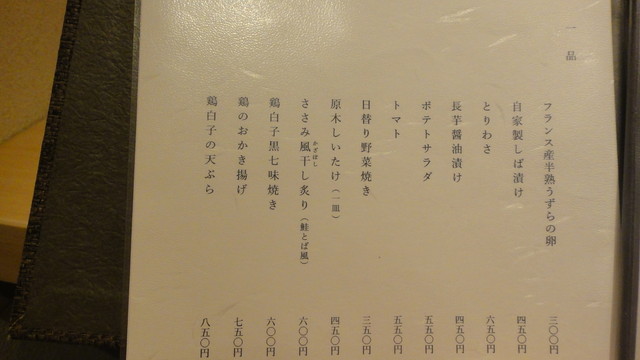 一品
フランス産半熟うずらの卵 三〇〇円
自家製しば漬け 四五〇円
とりわさ 六五〇円
長芋醤油漬け 四五〇円
ポテトサラダ 五五〇円
トマト 五五〇円
日替り野菜焼き 三五〇円
原木しいたけ（一皿） 四五〇円
ささみ風干し炙り（鮭とば風） 六〇〇円
かざぼし
鶏白子黒七味焼き 六〇〇円
鶏のおかき揚げ 七五〇円
鶏白子の天ぷら 八五〇円